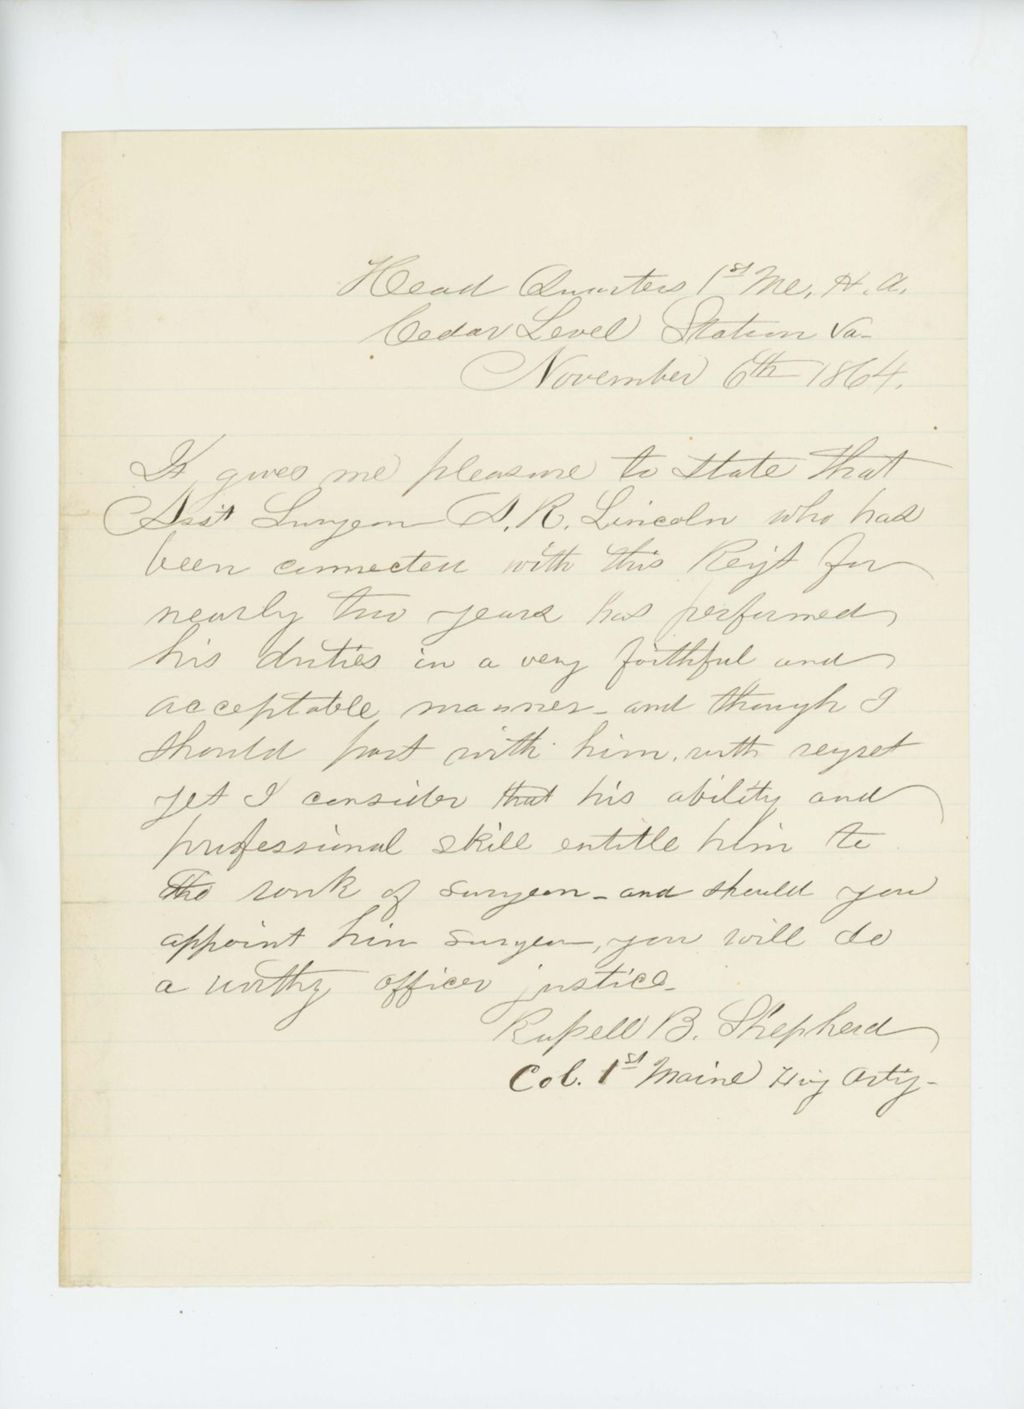 Head Quarters 1st Me. H. A.
Cedar Level Station Va-
November 6th 1864.
It gives me pleasure to state that
Asst Surgeon A. R. Lincoln who has
been connected with this Regt for
nearly two years has performed
his duties in a very faithful and
acceptable manner - and though I
should part with him, with regret
yet I consider that his ability and
professional skill entitle him to
the rank of Surgeon - and should you
appoint him Surgeon, you will do
a worthy officer justice -
Russell B. Shepherd
Col. 1st Maine Hvy Arty -